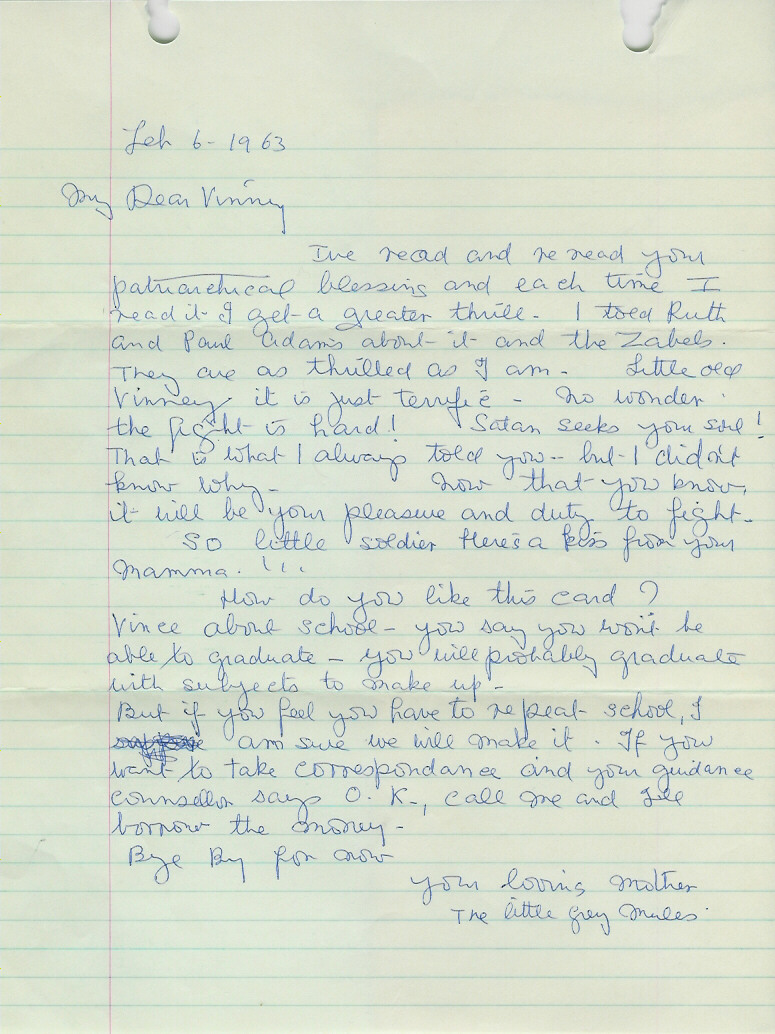 Feb 6 - 1963
My Dear Vinney
I've read and re read your
patriarchical blessing and each time I
read it I get a greater thrill - I told Ruth
and Paul Adams about it and the Zabels.
They are as thrilled as I am - Little old
Vinney it is just terrific - No wonder
the fight is hard! Satan seeks your soul!
That is what I always told you - but I didn't
know why - Now that you know,
it will be your pleasure and duty to fight -
So little soldier Here's a kiss from your
Mamma. !!!
How do you like this card ?
Vince about school - you say you won't be
able to graduate - you will probably graduate
with subjects to make up -
But if you feel you have to repeat school, I
am sure we will make it. If you
want to take correspondance and your guidance
counsellor says O. K., call me and I'll
borrow the money -
Bye By for now
your loving Mother
The little grey Mules.